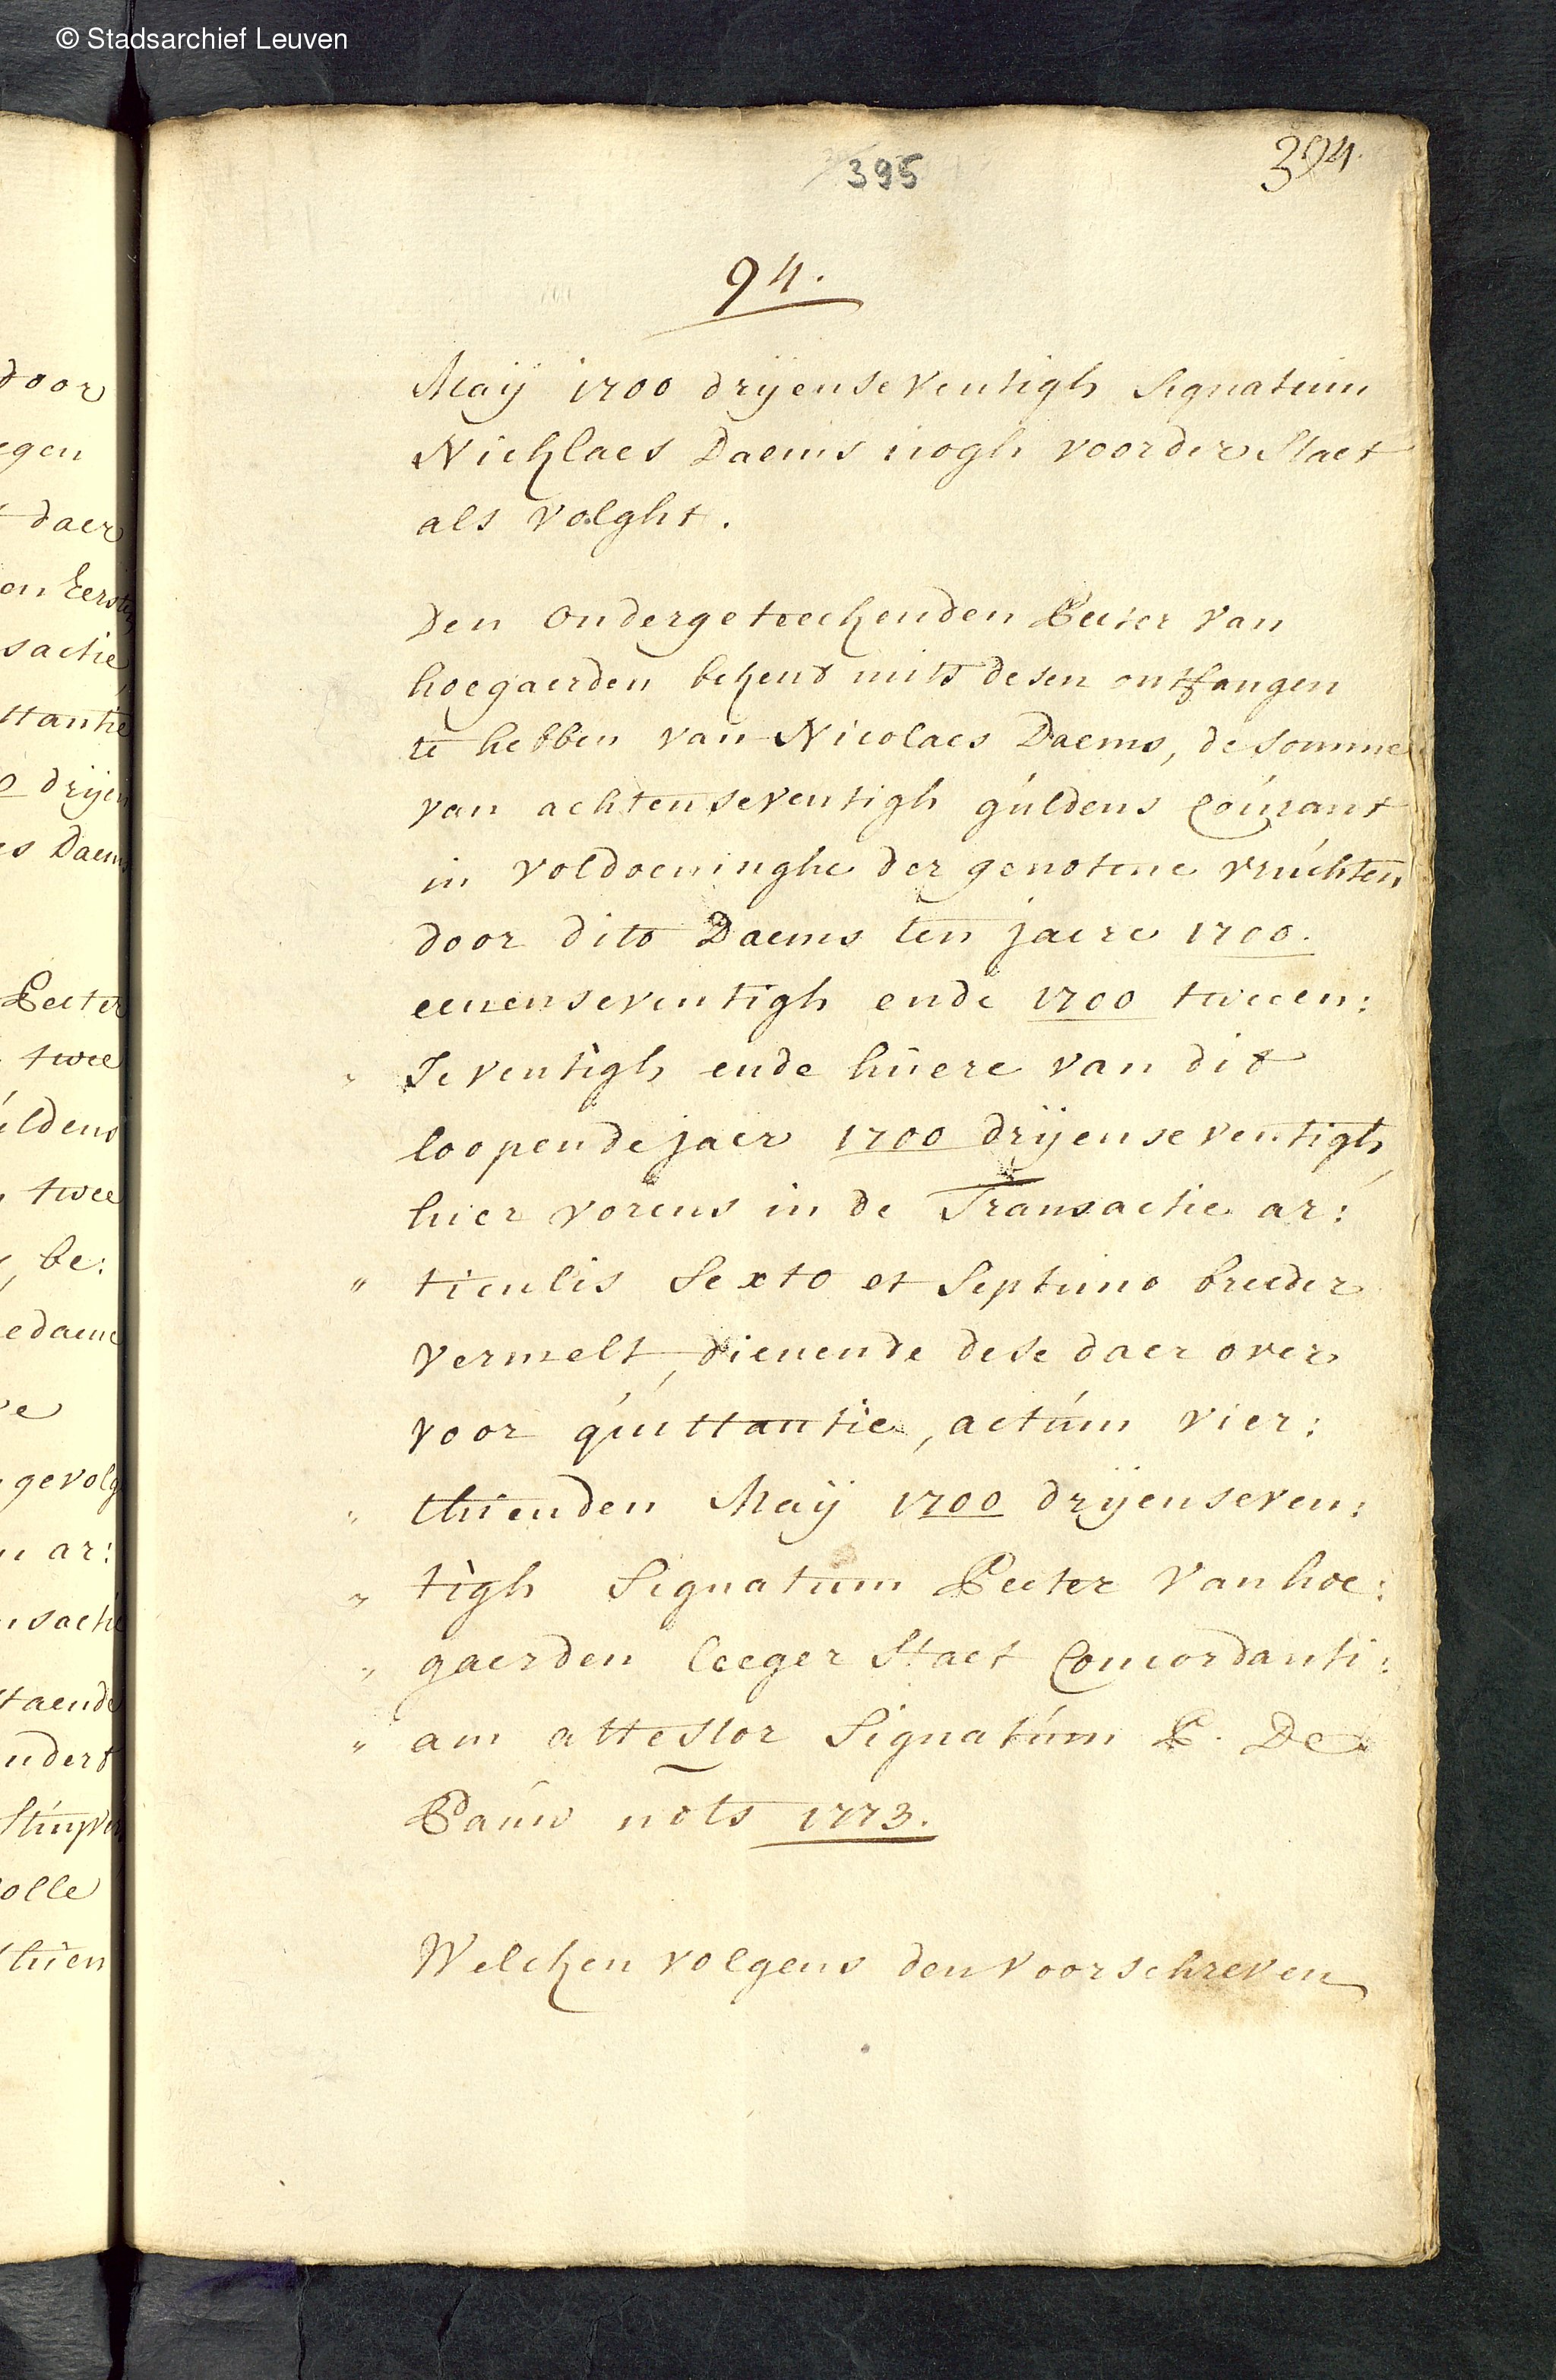 © Stadsarchief Leuven
395
394.
94.
Maÿ 1700 drijenseventigh Signatum
Nicklaes Daems nogh voorder Staet
als volght.
Den ondergeteeckenden Peeter van
hoegaerden bekent mits desen ontfangen
te hebben van Nicolaes Daems, de somme
van achtenseventigh gúldens Coúrant
in voldoeninghe der genotene vrúchten
door dito Daems ten jaere 1700.
eenenseventigh ende 1700 tween:
" Seventigh ende húere van dit
loopende jaer 1700 drijenseventigh,
hier vorens in de Transactie ar:
" ticulis Sexto et Septimo breeder
vermelt, dienende dese daer over
voor quittantie, actúm vier:
" thienden Maÿ 1700 drijenseven:
" tigh Signatum Peeter Van hoe:
" gaerden leeger Staet Concordanti:
" am attestor Signatúm P. De
Pauw nots 1773.
Welcken volgens den voorschreven
door
egen
daer
en Eersten
sactie,
ttantie
drijen
es Daems
Peeter
twee
úldens
twee
be:
edaene
gevolg
ar:
nsactie
staende
ndert
Stuyver
olle
thien